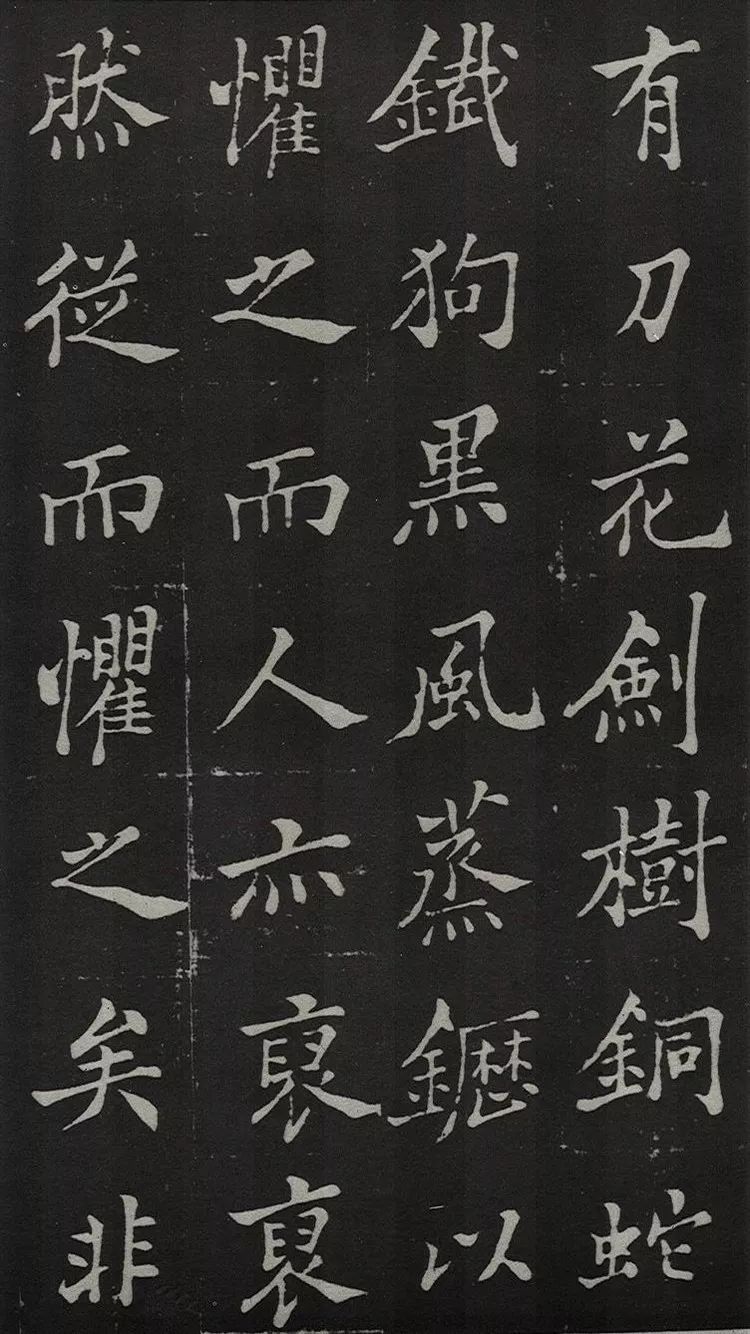 有刀花劍樹銅蛇
鐵狗黑風蒸䥶以
懼之而人亦袞袞
然從而懼之矣非